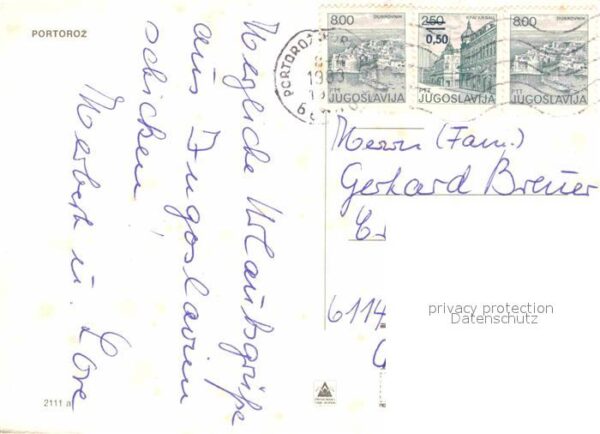 PORTOROŽ
Herzliche Urlaubsgrüße
aus Jugoslawien
schicken
Herbert u. Lore
2111 a
8.00
DUBROVNIK
JUGOSLAVIJA
2.50
0,50
KRAGUJEVAC
JUGOSLAVIJA
8.00
DUBROVNIK
JUGOSLAVIJA
PORTOROŽ
1983
Herrn (Fam.)
Gerhard Breuer
6114
privacy protection
Datenschutz